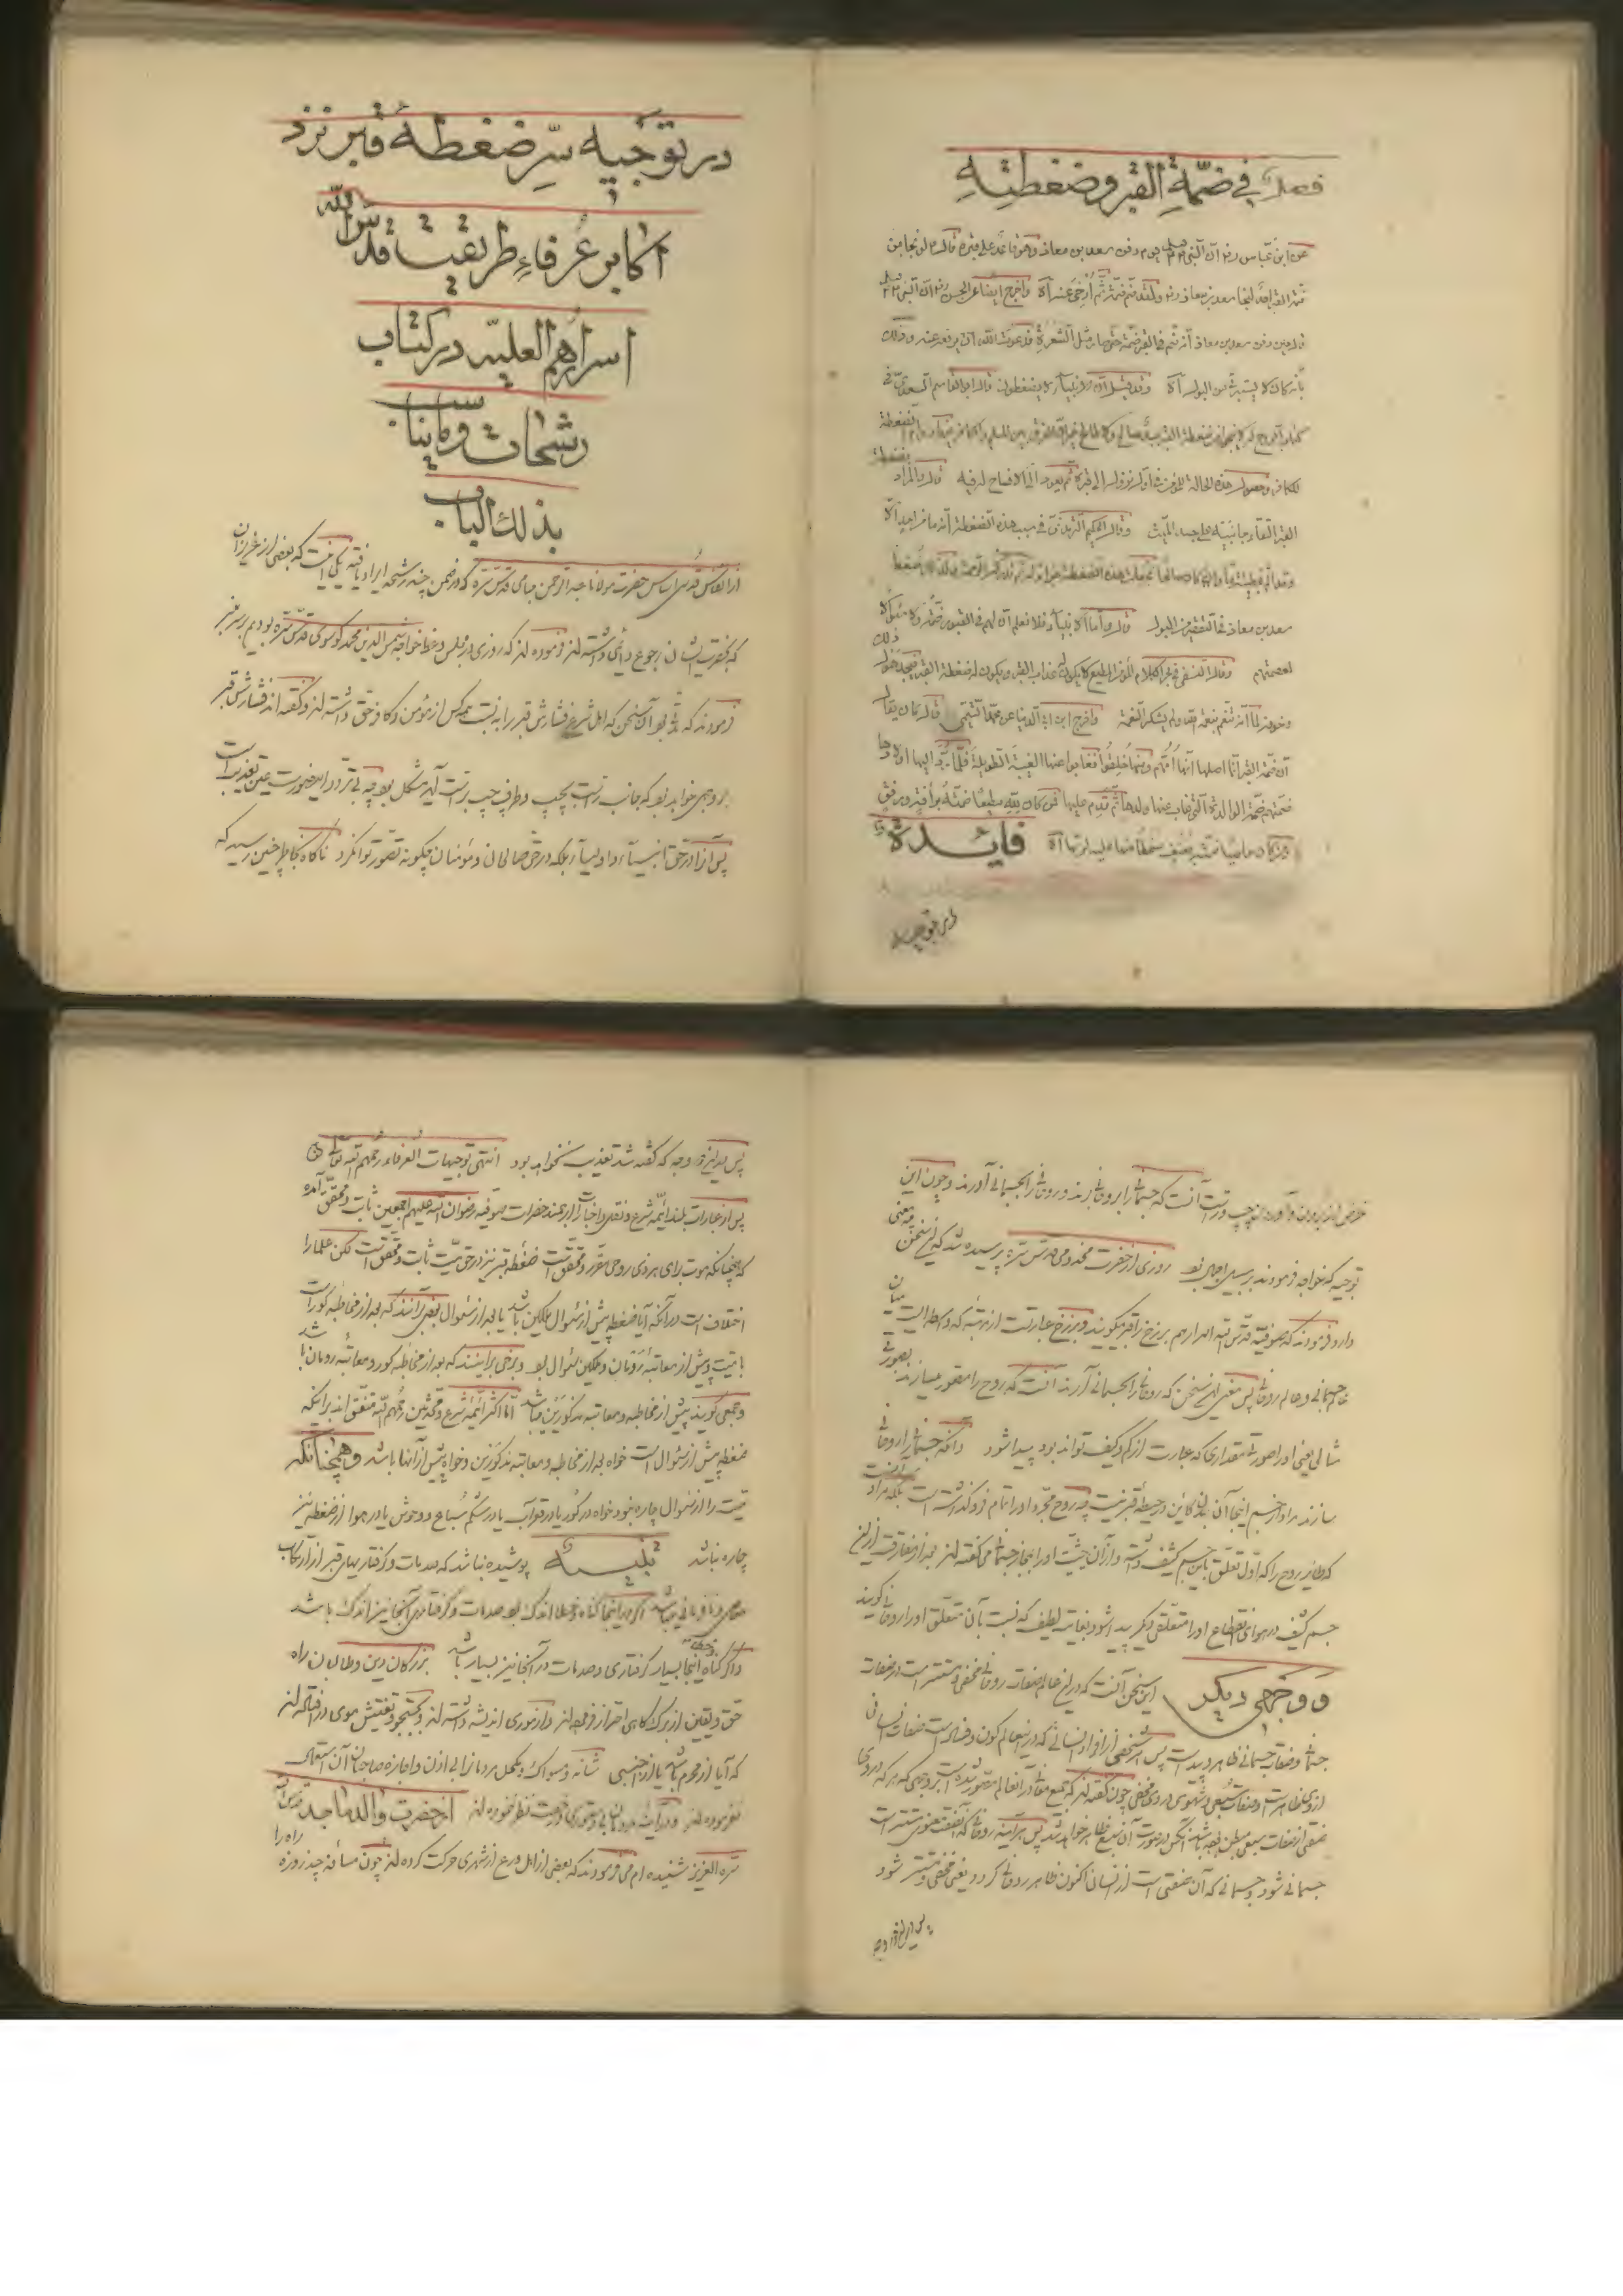 فصل في ضمّة القبر وضغطته
عن ابن عباس رض ان النبي صلعم يوم دفن سعد بن معاذ وهو قاعد على قبره قال لو نجا من
ضمّة القبر احد لنجا سعد بن معاذ ولقد ضم ضمّة ثم أرخي عنه اه واخرج ايضا عن الحسن ان النبي صلعم
قال حين دفن سعد بن معاذ انه ضم في القبر ضمّة حتى صار مثل الشعرة فدعوت الله ان يرفعه عنه وذلك
بانه كان لا يستبرئ من البول اه وقد قيل ان الانبياء لا يضغطون قال ابو القاسم السعدي في
كتاب الروح له لا ينجو من ضغطة القبر صالح ولا طالح غير ان الفرق بين المسلم والكافر فيها دوام الضغطة
للكافر وحصول هذه الحالة للمؤمن في اول نزوله الى قبره ثم يعود الى الافساح له فيه قال والمراد بضغطة
القبر التقاء جانبيه على جسد الميّت وقال الحكيم الترمذي في سبب هذه الضغطة انه ما من احد الا
وقد الم بخطيئة ما وان كان صالحا فجعلت هذه الضغطة جزاء له ثم تدركه الرحمة ولذلك ضغط
سعد بن معاذ في التقصير من البول قال واما الانبياء فلا نعلم ان لهم في القبور ضمّة ولا سؤالا
لعصمتهم وقال النسفي في بحر الكلام المؤمن المطيع لا يكون له عذاب القبر ويكون له ضغطة القبر فيجد هول ذلك
وخوفه لما انه تنعم بنعمة الله ولم يشكر النعمة واخرج ابن ابي الدنيا عن محمد التيمي قال كان يقال
ان ضمّة القبر انما اصلها انها أمّهم ومنها خلقوا فغابوا عنها الغيبة الطويلة فلما رد اليها اولادها
ضمّتهم ضمّة الوالدة التي غاب عنها ولدها ثم قدم عليها فمن كان لله مطيعا ضمته برأفة ورفق
ومن كان عاصيا ضمته بعنف سخطا منها عليه لربها اه فايدة
در توجيه
در توجيه سرّ ضغطۀ قبر نزد
اكابر عُرفاءِ طريقت قدس الله
اسرارهم العليّه در كتاب
رشحات وما يناسب
بذلك الباب
از انفاس قدسی اساس حضرت مولانا عبد الرحمن جامی قدس سره كه در ضمن چند رشحه ايراد يافته يكی اينست كه بعضی از عزيزان
كه بحضرت ايشان رجوع دائمی داشته اند فرموده اند كه روزی در مجلس وعظ خواجه شمس الدين محمد كوسوی قدس سره بوديم بر سر منبر
فرمودند كه آن سخن كه اهل شرع فشارش قبر را به نسبت همه كس از مؤمن وكافر حق داشته اند وگفته اند فشارش قبر
بر وجهی خواهد بود كه جانب راست بچپ وطرف چپ براست آيد مشكل بود چه بی تردد اين صورت عين تعذيب است
پس آنرا در حق انبياء واولياء بلكه در حق صالحان ومؤمنان چگونه تصوّر توان كرد ناگاه بخاطر چنين رسيد كه
غرض از بردن وآوردن چپ وراست آنست كه جسمانی را بروحانی برند وروحانی را بجسمانی آورند وچون اين
توجيه كه خواجه فرمودند بر سبيل اجمال بود روزی از حضرت مخدومی قدس سره پرسيده شد كه اين سخن چه معنی
دارد فرمودند كه صوفيه قدس الله اسرارهم برزخ را قبر ميگويند وبرزخ عبارتست از مرتبۀ كه واسطه است ميان
عالم جسمانی وعالم روحانی پس معنی اين سخن كه روحانی را بجسمانی آرند آنست كه روح را مصوّر ميسازند بصورت
مثالی يعنی او را صورت مقداری كه عبارت از كم وكيف تواند بود پيدا شود وانكه جسمانی را روحانی
سازند مراد از جسم اينجا آن بدن كاين در حيطۀ قبر نيست چه روح مجرد او را تمام فرو گذاشته است بلكه مراد آنست
كه طاير روح را كه اول تعلق باين جسم كثيف داشته واز آن حيثيت او را بمجاز جسمانی می گفته اند بعد از مفارقت ازين
جسم كثيف در هوای انقطاع او را متعلقی ديگر پيدا شود بغايت لطيف كه نسبت بآن متعلق او را روحانی گويند
و وجهی ديگر اين سخن آنست كه در اين عالم صفات روحانی مخفی ومستتر است در صفات
جسمانی وصفات جسمانی ظاهر وپيداست پس هر شخصی از افراد انسانی كه در اين عالم كون وفساد است صفات انسانی
از وی ظاهر است وصفات سبعی وشهوی در وی مخفی چون گفته اند كه جميع معانی در آن عالم مصوّر شده است بر وجهی كه هر كه در وی
صفتی از صفات سبعی مبطن بوده باشد آنكس در صورت آن سبع ظاهر خواهد شد پس هر آينه روحانی كه آن صفت معنوی مستتر است
جسمانی شود وجسمانی كه آن صفتی است از انسان اكنون ظاهر روحانی گردد يعنی مخفی ومستتر شود
پس بدين دو وجه
پس بدين دو وجه كه گفته شد تعذيب نخواهد بود انتهی توجيهات العرفاء رحمهم الله تعالی
پس از عبارات بلند ائمۀ شرع ونصّ واخبار ارجمند حضرات صوفيه رضوان الله عليهم اجمعين ثابت ومحقق آمد
كه چنانكه موت برای هر ذی روحی مقرر ومحقق است ضغطۀ قبر نيز در حق ميت ثابت ومحقق است لكن علما را
اختلاف است در آنكه آيا ضغطه پيش از سؤال ملكين باشد يا بعد از سؤال بعضی برآنند كه بعد از مخاطبۀ گور است
با ميت وپيش از معاتبۀ رومان وملكين سؤال بود وبرخی براينند كه بعد از مخاطبۀ گور ومعاتبۀ رومان باشد
وجمعی گويند پيش از مخاطبه ومعاتبۀ مذكورين ميباشد اما اكثر ائمۀ شرع ومحدثين رحمهم الله متفق اند برآنكه
ضغطه پيش از سؤال است خواه بعد از مخاطبه ومعاتبۀ مذكورين وخواه پيش از آنها باشد وهمچنانكه
ميت را از سؤال چاره نبود خواه در گور يا در قعر آب يا در شكم سباع ووحوش يا در هوا از ضغطه نيز
چاره نباشد تنبيه پوشيده نباشد كه صدمات وگرفتاريهای قبر از ارتكاب
معاصی ونافرمانی ميباشد اگر در اينجا گناه وخطا اندك بود صدمات وگرفتاری آنجا نيز اندك باشد
واگر گناه وخطای اينجا بسيار گرفتاری وصدمات در آنجا نيز بسيار باشد بزرگان دين وطالبان راه
حق ويقين از برگ كاهی احتراز فرموده اند واز موری انديشه داشته اند وبجستجو وتفتيش موی در افتاده اند
كه آيا از محرم باشد يا از اجنبی شانه ومسواك ومكحل مردمان را بی اذن واجازۀ صاحبان آن استعمال
نفرموده اند از حضرت والد ماجد قدس الله
سره العزيز شنيده ام می فرمودند كه بعضی از اهل ورع از شهری حركت كرده اند چون مسافۀ چند روزه راه را